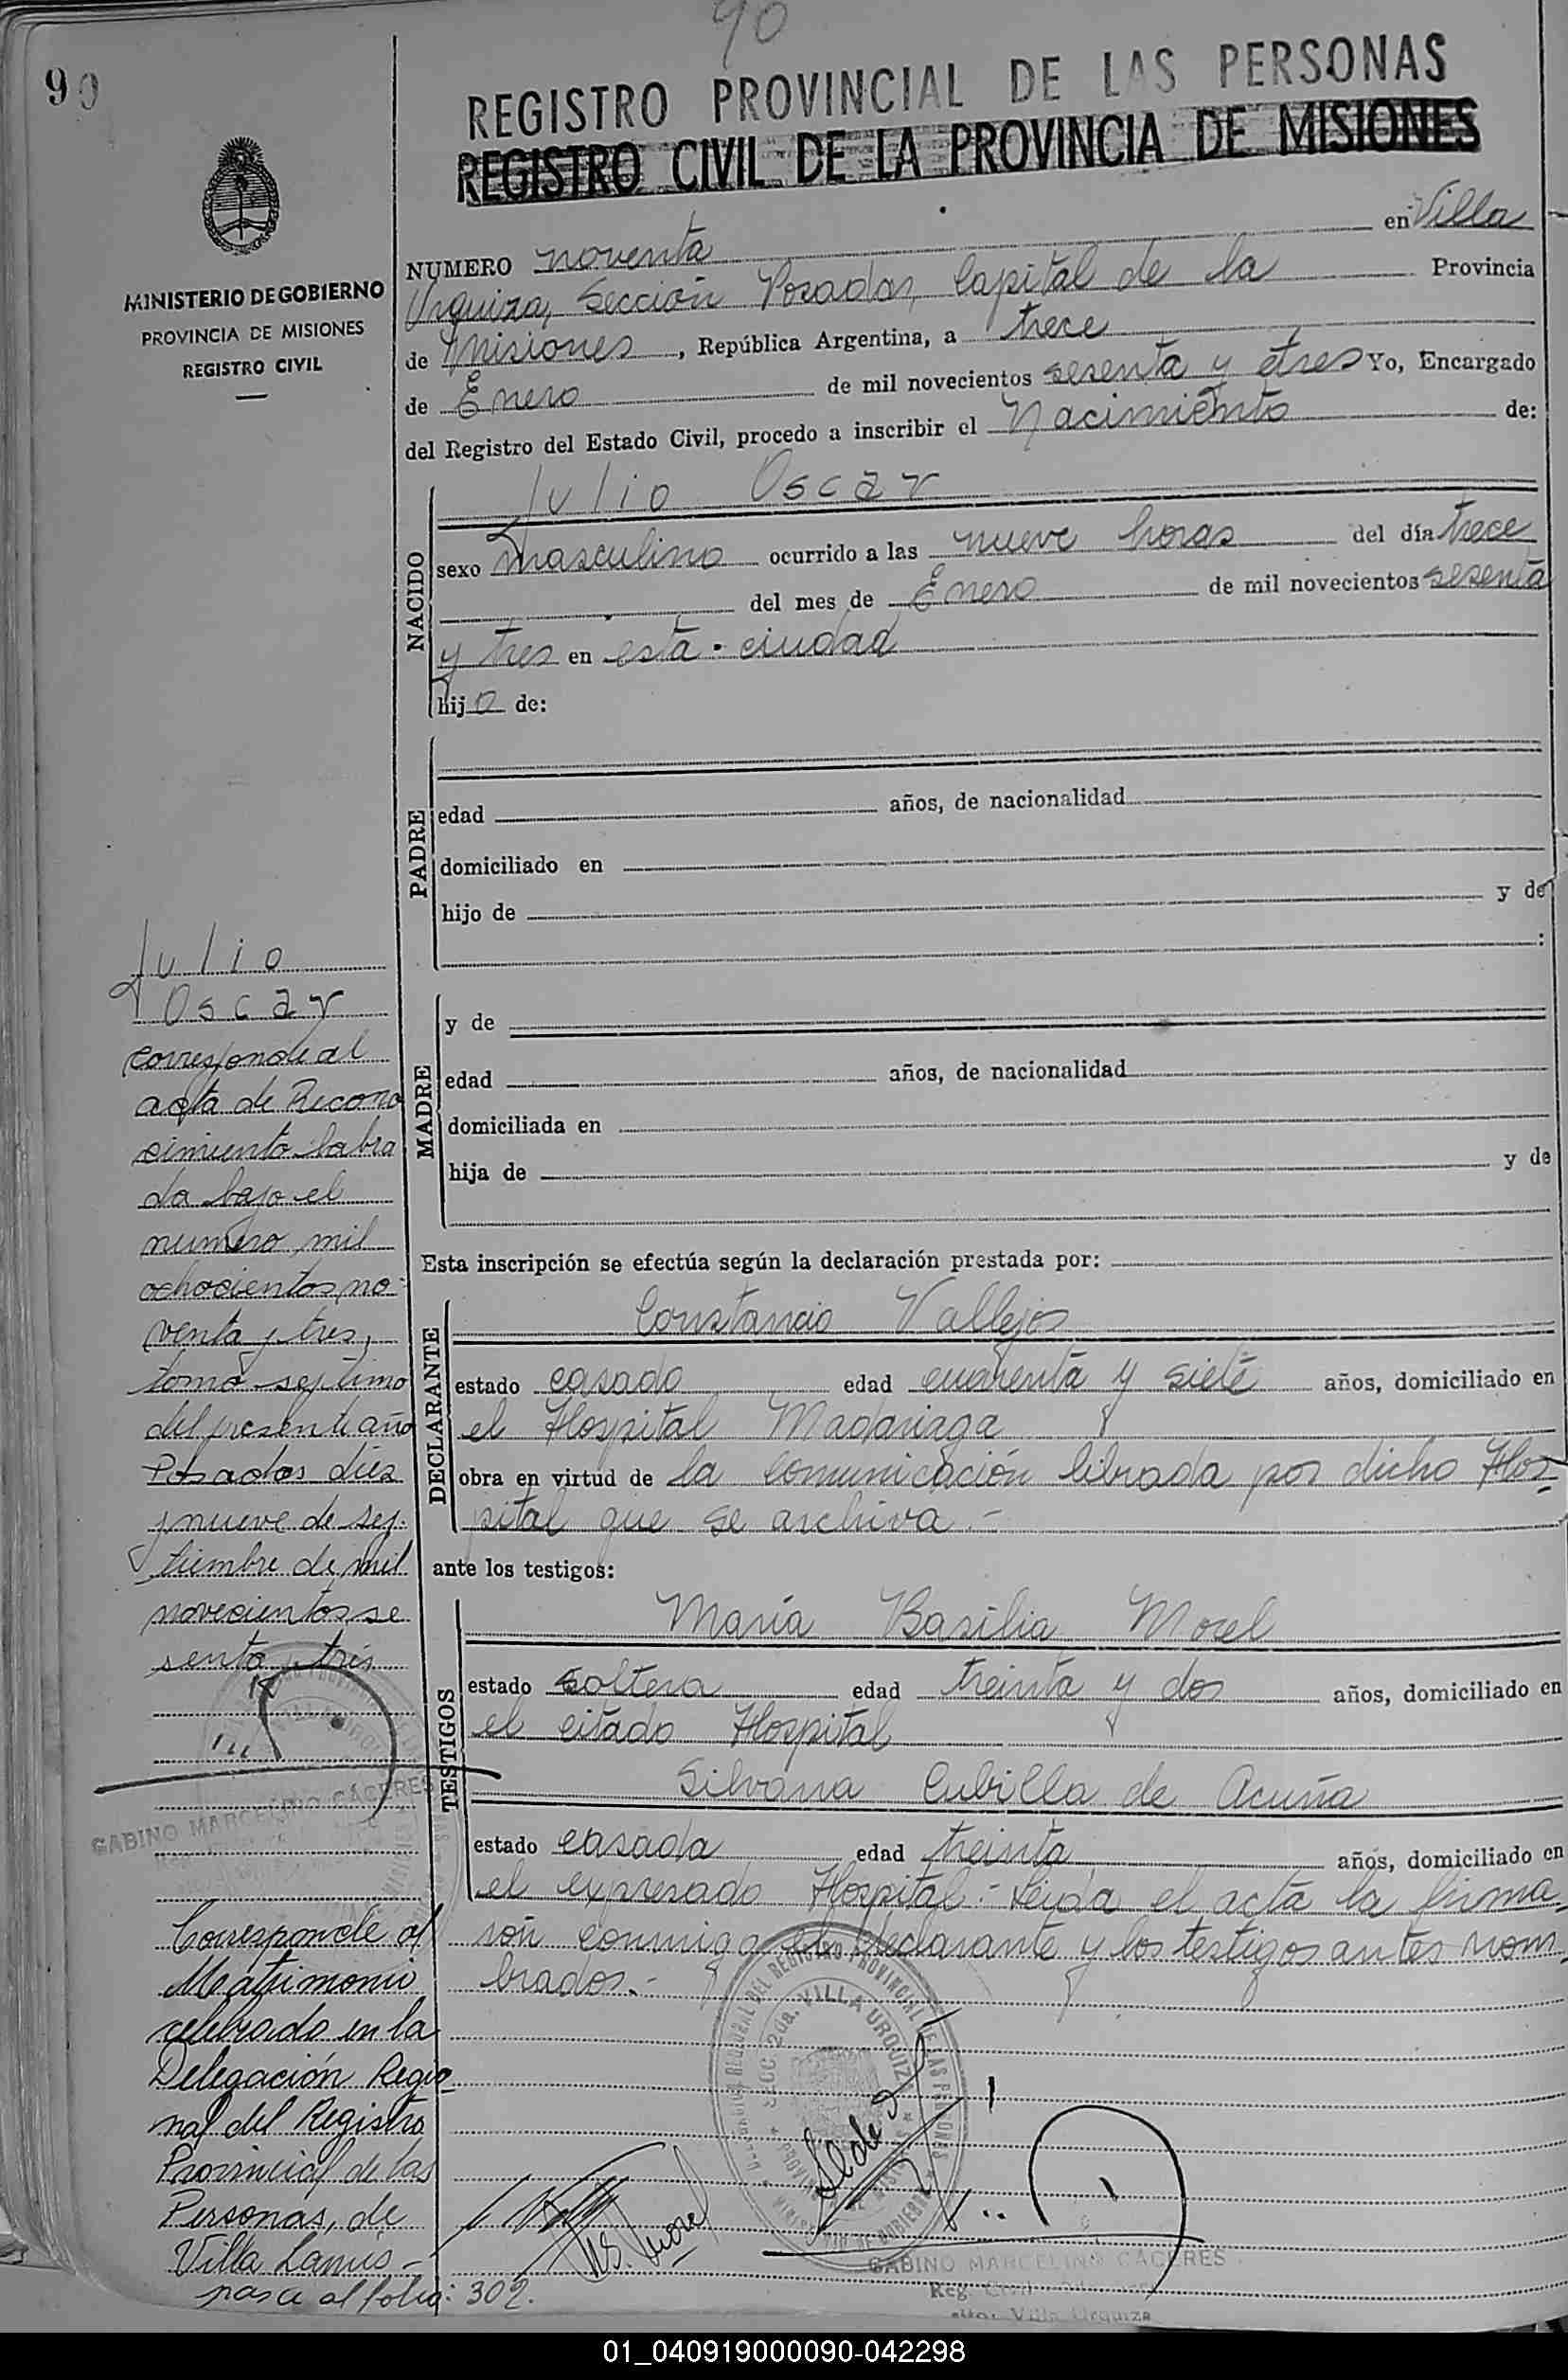 90
90
REGISTRO PROVINCIAL DE LAS PERSONAS
REGISTRO CIVIL DE LA PROVINCIA DE MISIONES
MINISTERIO DE GOBIERNO
PROVINCIA DE MISIONES
REGISTRO CIVIL
NUMERO noventa en Villa
Urquiza, Sección Posadas, Capital de la Provincia
de Misiones, República Argentina, a trece
de Enero de mil novecientos sesenta y tres Yo, Encargado
del Registro del Estado Civil, procedo a inscribir el Nacimiento de:
NACIDO
Julio Oscar
sexo masculino ocurrido a las nueve horas del día trece
del mes de Enero de mil novecientos sesenta
y tres en esta ciudad
hijo de:
PADRE
edad años, de nacionalidad
domiciliado en
hijo de y de
:
MADRE
y de
edad años, de nacionalidad
domiciliada en
hija de y de
Esta inscripción se efectúa según la declaración prestada por:
DECLARANTE
Constancio Vallejos
estado casado edad cuarenta y siete años, domiciliado en
el Hospital Madariaga
obra en virtud de la comunicación librada por dicho Hos-
pital que se archiva.-
ante los testigos:
TESTIGOS
María Basilia Morel
estado soltera edad treinta y dos años, domiciliado en
el citado Hospital
Silvana Cubilla de Acuña
estado casada edad treinta años, domiciliado en
el expresado Hospital.- Leida el acta la firma-
ron conmigo el declarante y los testigos antes nom-
brados.-
Julio
Oscar
corresponde al
acta de Recono
cimiento labra
da bajo el
numero mil
ochocientos no-
venta y tres,
tomo septimo
del presente año
Posadas diez
y nueve de sep-
tiembre de mil
novecientos se
senta y tres
GABINO MARCELINO CACERES
Corresponde al
Matrimonio
celebrado en la
Delegación Regio-
nal del Registro
Provincial de las
Personas, de
Villa Lanús -
pasa al folio: 302.
SECC 2da. VILLA URQUIZA
GABINO MARCELINO CACERES
Villa Urquiza
01_040919000090-042298